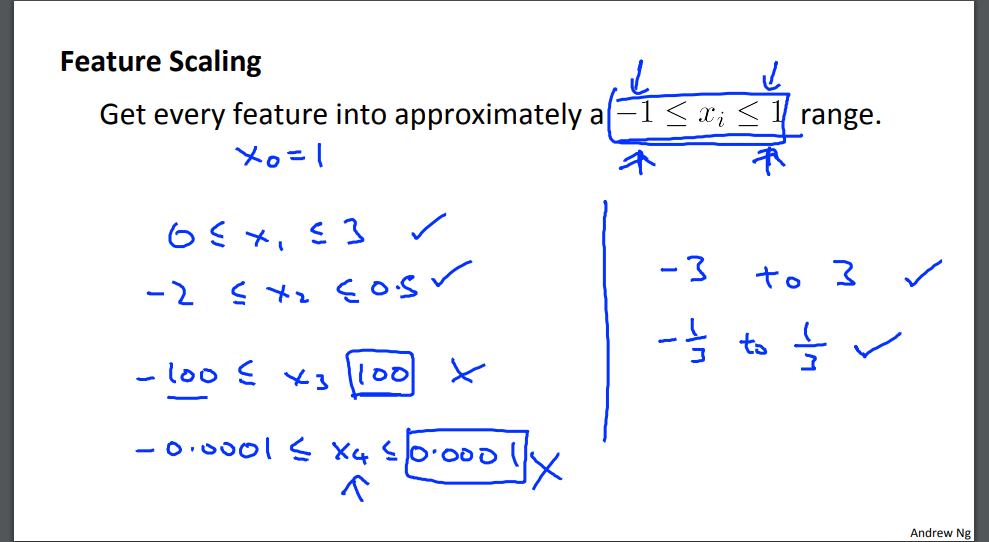 Feature Scaling
Get every feature into approximately a −1 ≤ xᵢ ≤ 1 range.
x₀ = 1
0 ≤ x₁ ≤ 3 ✓
-2 ≤ x₂ ≤ 0.5 ✓
-100 ≤ x₃ 100 ×
-0.0001 ≤ x₄ ≤ 0.0001 ×
-3 to 3 ✓
-1/3 to 1/3 ✓
Andrew Ng